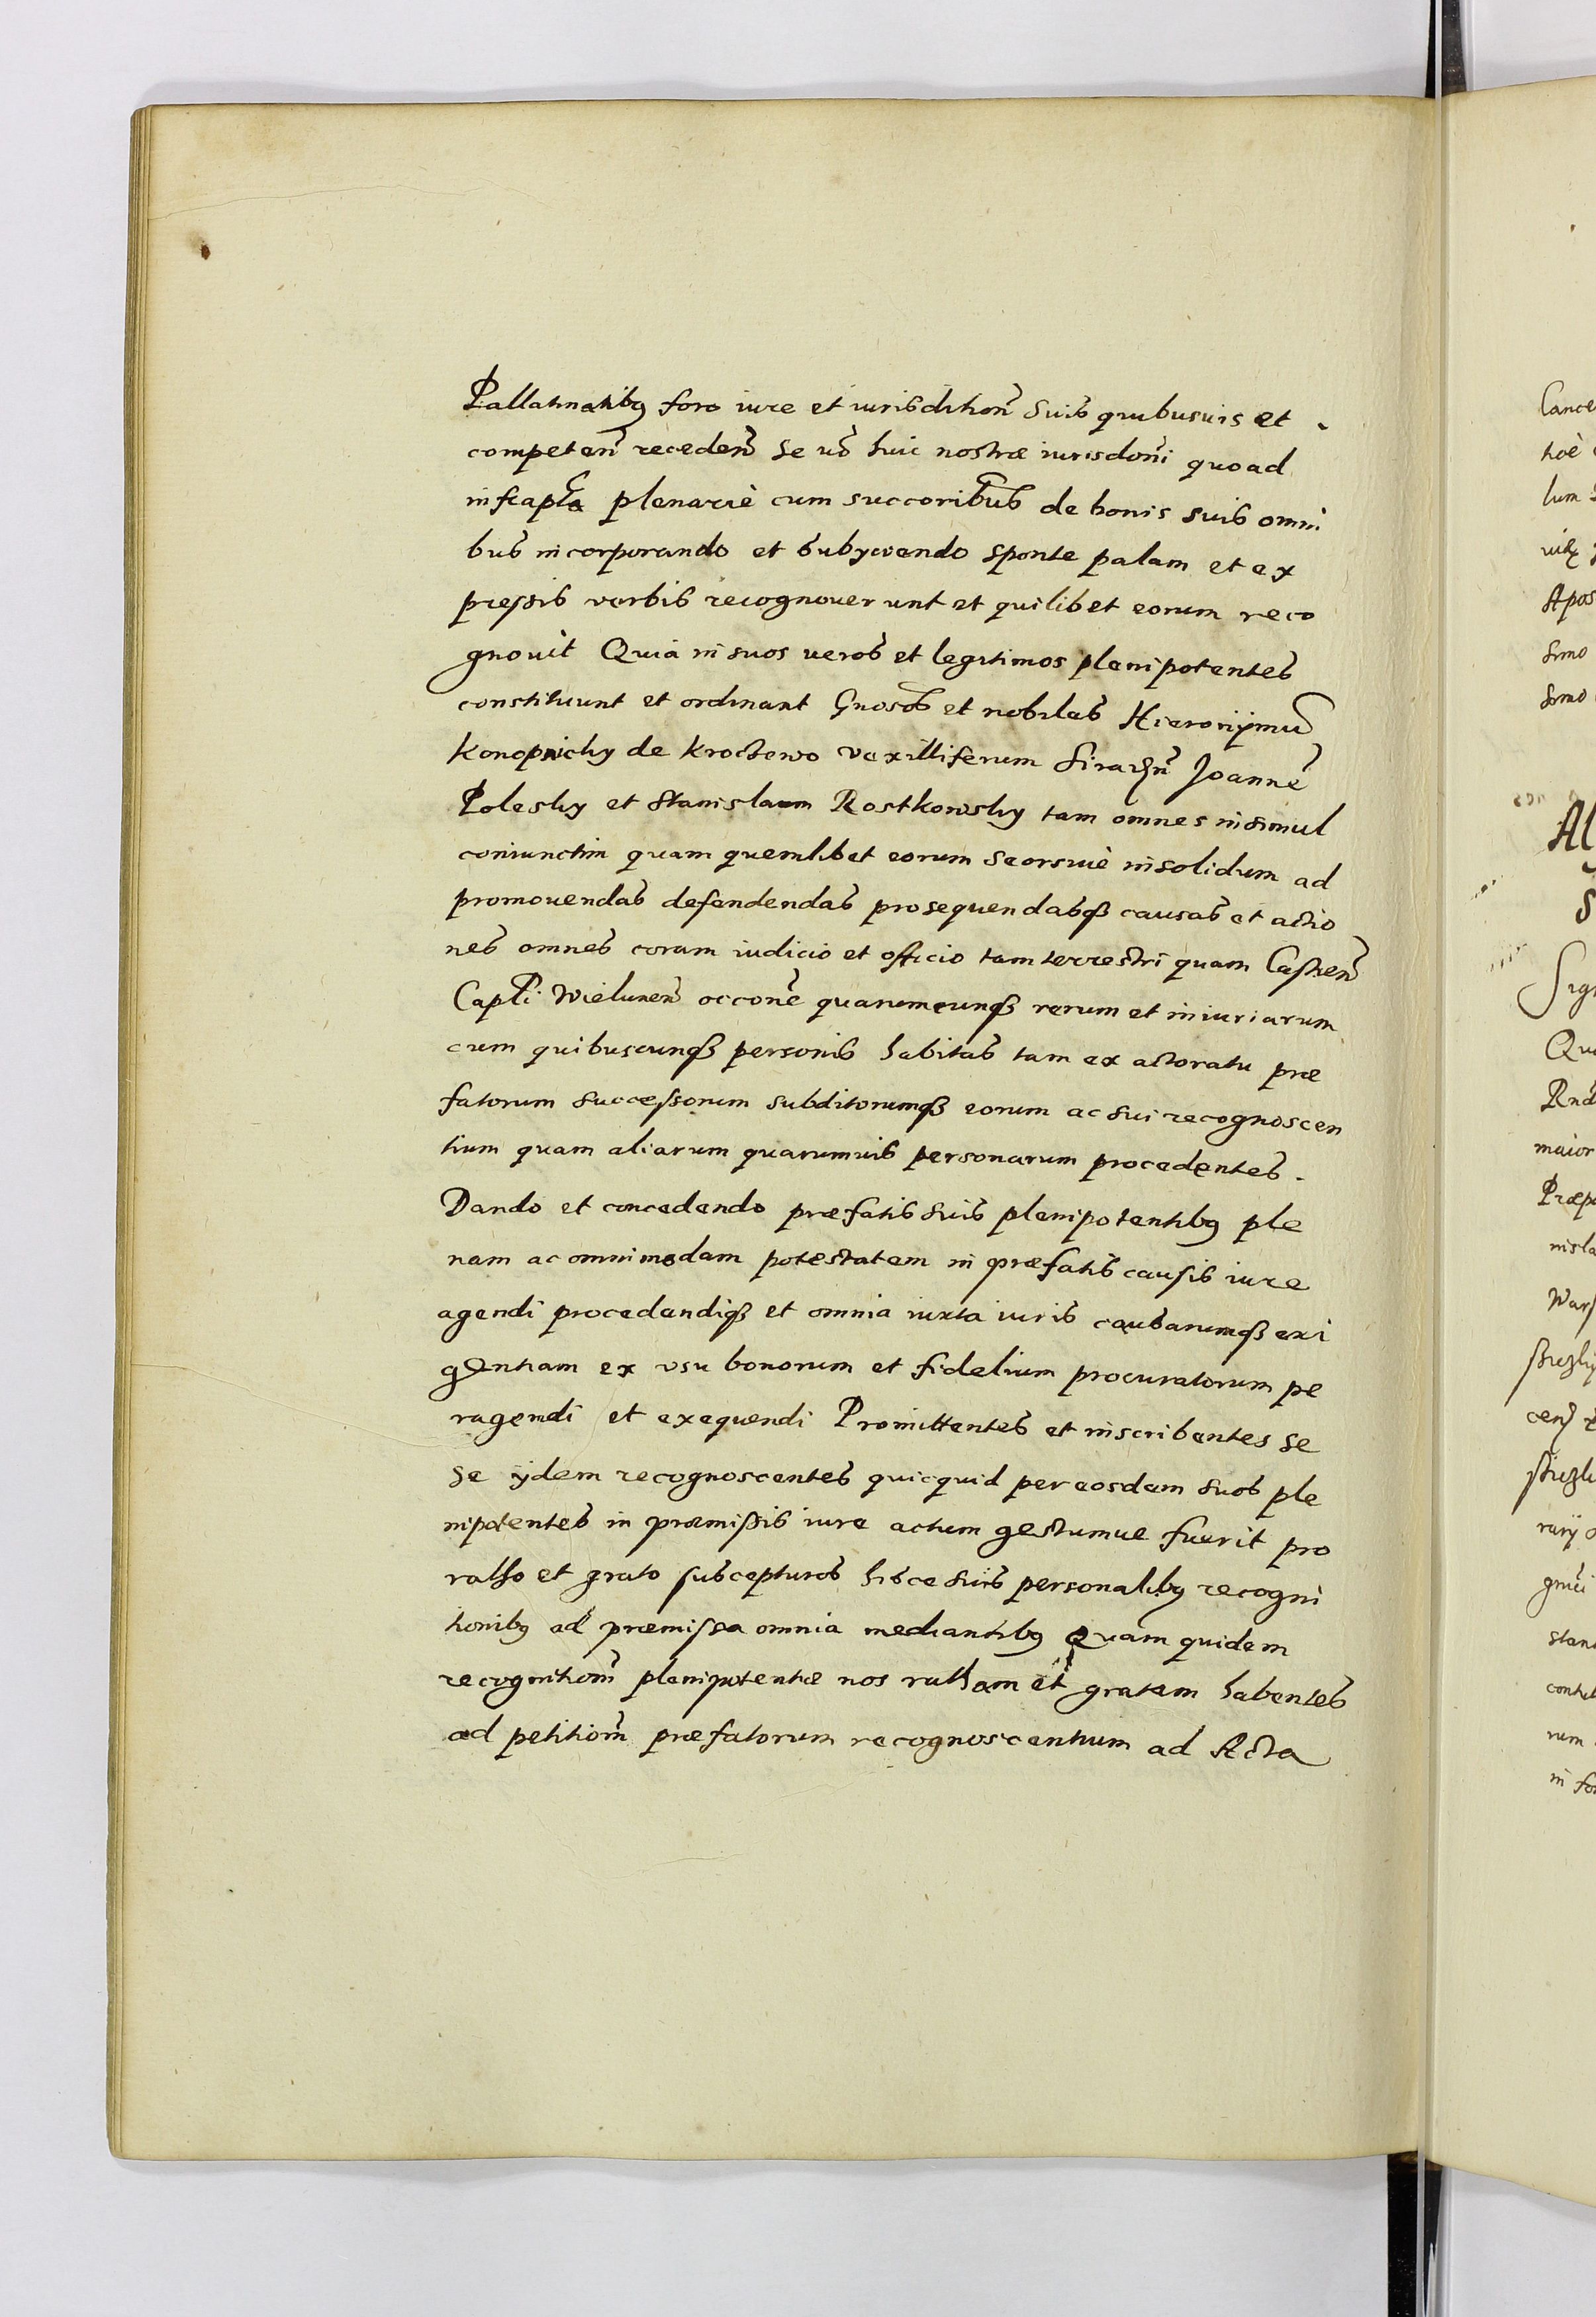 Pallatinatibq foro iure et iurisdition̄ suis quibusuis et
competen̄ receden̄ se vō huic nostræ iurisdoni quoad
infrapta plenariè cum succoribus de bonis suis omni
bus incorporando et subyciendo sponte palam et ex
pressis verbis recognouerunt et quilibet eorum reco
gnouit Quia in suos veros et legitimos plenipotentes
constituunt et ordinant Gnosos et nobiles Hieronymū
Konopnicky de Krochewo vexilliferum Siradn̄ Joannē
Polesky et Stanislaum Rostkowsky tam omnes insimul
coniunctim quam quemlibet eorum seorsiuè insolidum ad
promouendas defendendas prosequendasqȝ causas et actio
nes omnes coram iudicio et officio tam terrestri quam Castren̄
Capli Wielunen̄ occone quarumcunqȝ rerum et iniuriarum
cum quibuscunqȝ personis habitas tam ex actoratu præ
fatorum successorum subditorumqȝ eorum ac sui recognoscen
tium quam aliarum quarumuis personarum procedentes.
Dando et concedendo præfatis suis plenipotentibq ple
nam ac omnimodam potestatem in præfatis causis iure
agendi procedendiqȝ et omnia iuxta iuris causarumqȝ exi
gentiam ex vsu bonorum et fidelium procuratorum pe
ragendi et exequendi Promittentes et inscribentes se
se ijdem recognoscentes quicquid per eosdem suos ple
nipotentes in præmissis iure actum gestumue fuerit pro
ratho et grato suscepturos hisce suis personalibq recogni
tionibq ad præmissa omnia mediantibq Quam quidem
recognitionē plenipotentiæ nos ratham et gratam habentes
ad petitionē præfatorum recognoscentium ad Acta
Cance
hoē
lum
Apos
simo
simo
Al
S
Sig
Qu
Rnd
maior
Præp
nisla
Wars
cen
rarij
Stan
rum
in fo